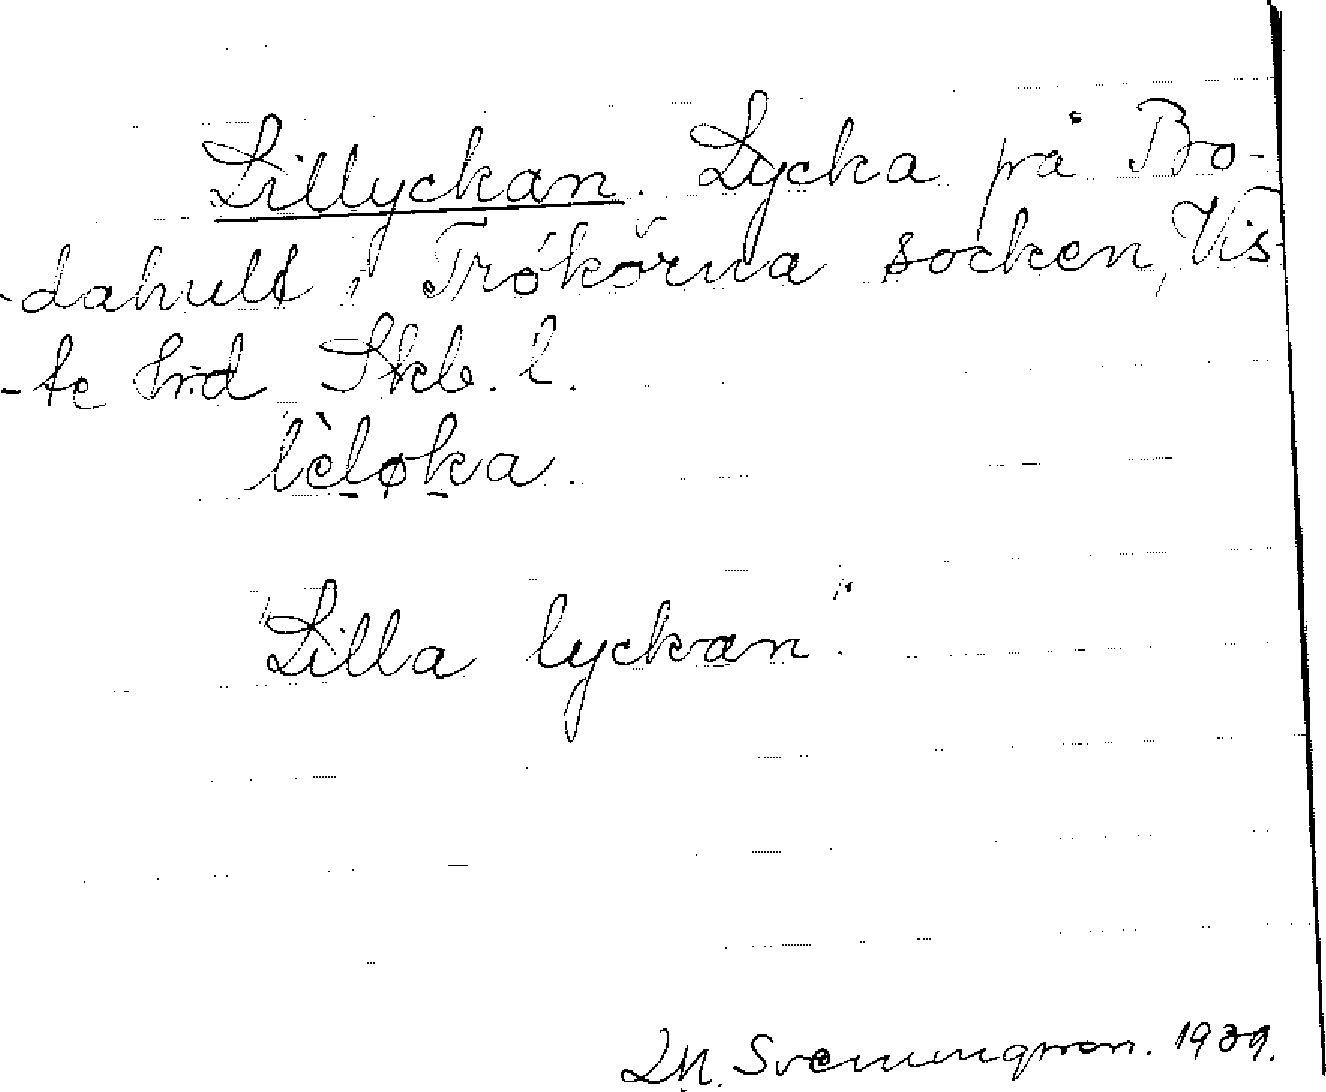 Lillyckan. Lycka på Bro-
-dahult i Trökörna socken, Vis-
-te hrd Skb. l.
lèløka.
"Lilla lyckan".
Svenungsson. 1939.